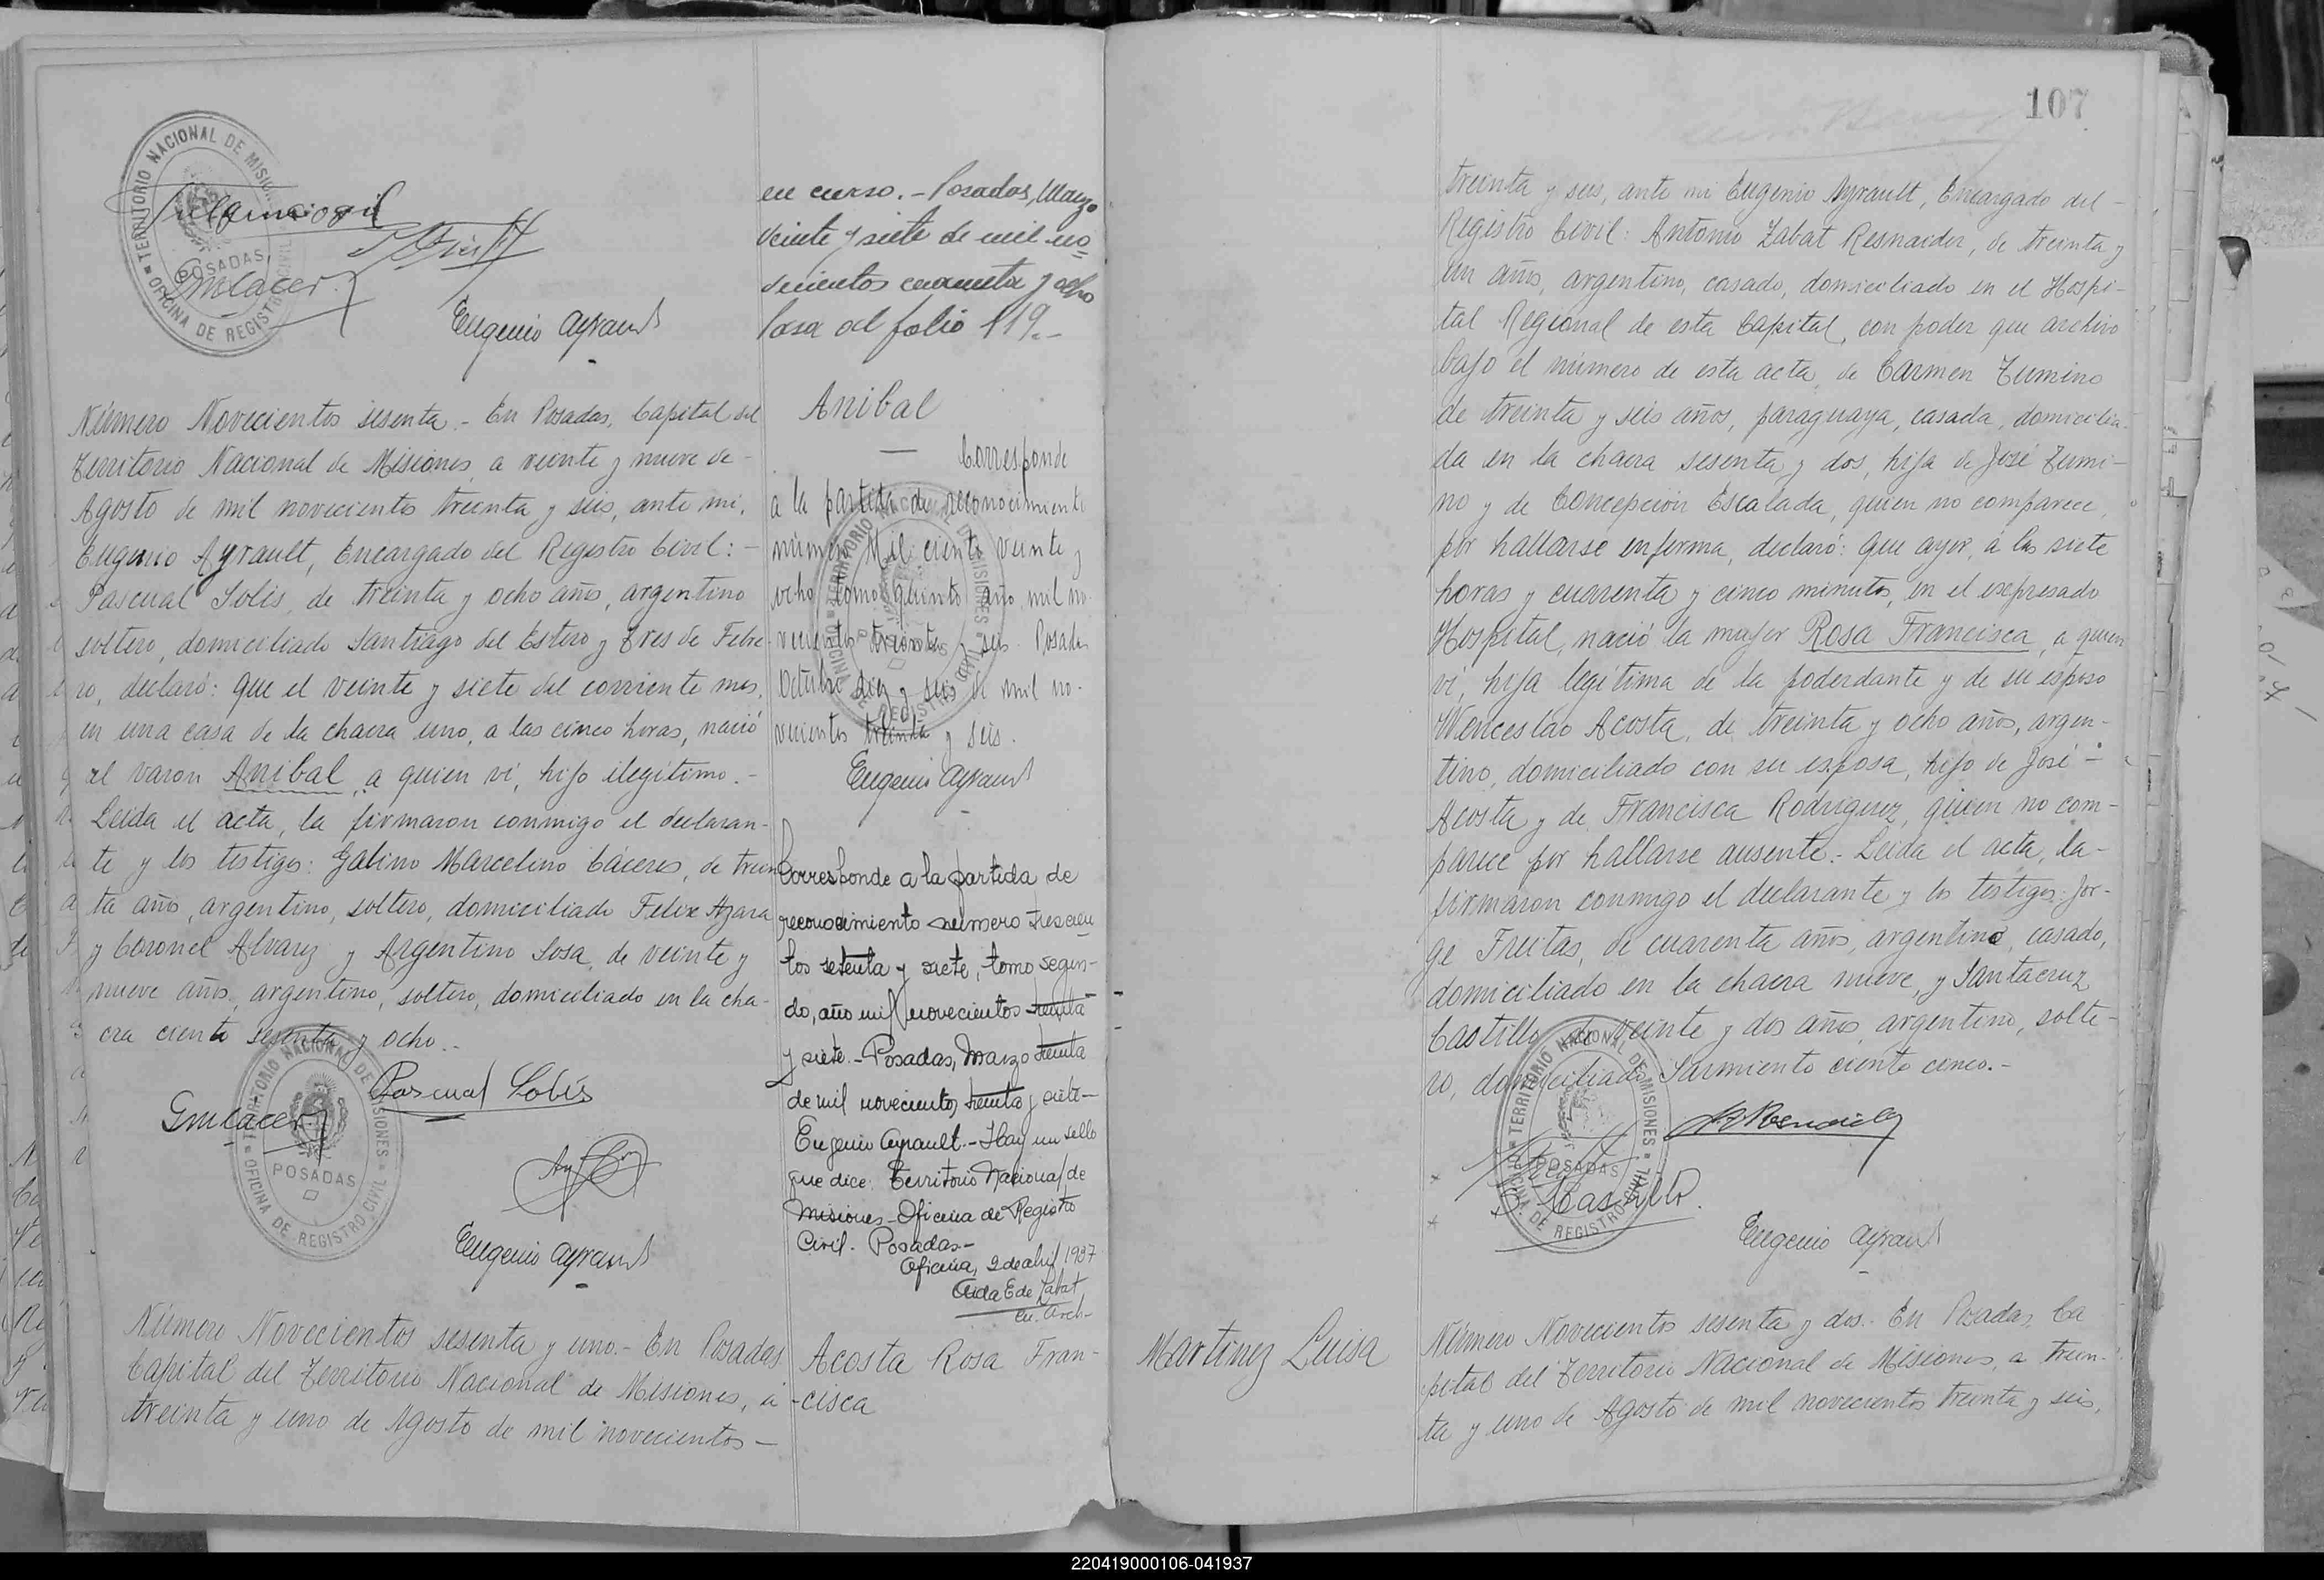 en curso. - Posadas, Marzo
veinte y siete de mil no
vecientos cuarenta y ocho
Pasa al folio 119.-
TERRITORIO NACIONAL DE MISIONES
POSADAS
OFICINA DE REGISTRO CIVIL
Gmcacer
Eugenio Ayrault
Número Novecientos sesenta. - En Posadas, Capital del
Territorio Nacional de Misiones, a veinte y nueve de -
Agosto de mil novecientos treinta y seis, ante mi,
Eugenio Ayrault, Encargado del Registro Civil: -
Pascual Solis, de treinta y ocho años, argentino
soltero, domiciliado Santiago del Estero y Tres de Febre-
ro, declaró: que el veinte y siete del corriente mes,
en una casa de la chacra uno, a las cinco horas, nació
el varon Anibal, a quien vi, hijo ilegítimo. -
Leida el acta, la firmaron conmigo el declaran-
te y los testigos: Galino Marcelino Cáceres, de trein
ta años, argentino, soltero, domiciliado Felix Azara
y Coronel Alvarez y Argentino Sosa, de veinte y
nueve años, argentino, soltero, domiciliado en la cha-
cra ciento sesenta y ocho. -
Pascual Solís
Gmcacer
TERRITORIO NACIONAL DE MISIONES
POSADAS
OFICINA DE REGISTRO CIVIL
Eugenio Ayrault
Número Novecientos sesenta y uno. - En Posadas
Capital del Territorio Nacional de Misiones, a
treinta y uno de Agosto de mil novecientos -
Anibal
Corresponde
a la partida de reconocimiento
número Mil ciento veinte y
ocho tomo quinto año mil no-
vecientos treinta y seis. Posadas
Octubre diez y seis de mil no-
vecientos treinta y seis.
Eugenio Ayrault
Corresponde a la partida de
reconocimiento número trescien
tos setenta y siete, tomo segun-
do, año mil novecientos treinta
y siete. - Posadas, Marzo treinta
de mil novecientos treinta y siete -
Eugenio Ayrault. - Hay un sello
que dice: Territorio Nacional de
Misiones - Oficina de Registro
Civil. Posadas -
Oficina, 2 de abril 1937
Aida E de Labat
En. Arch-
Acosta Rosa Fran-
-cisca
107
treinta y seis, ante mi Eugenio Ayrault, Encargado del -
Registro Civil: Antonio Labat Resnaider, de treinta y
un años, argentino, casado, domiciliado en el Hospi-
tal Regional de esta Capital, con poder que archivo
bajo el número de esta acta, de Carmen Tumino
de treinta y seis años, paraguaya, casada, domicilia-
da en la chacra sesenta y dos, hija de José Tumi-
no y de Concepción Escalada, quien no comparece,
por hallarse enferma, declaró: Que ayer, a las siete
horas y cuarenta y cinco minutos, en el expresado
Hospital, nació la mujer Rosa Francisca, a quien
vi, hija legítima de la poderdante y de su esposo
Wenceslao Acosta, de treinta y ocho años, argen-
tino, domiciliado con su esposa, hijo de José -
Acosta y de Francisca Rodriguez, quien no com-
parece por hallarse ausente. - Leida el acta, la -
firmaron conmigo el declarante y los testigos: Jor-
ge Freitas, de cuarenta años, argentino, casado,
domiciliado en la chacra nueve, y Santacruz
Castillo, de veinte y dos años, argentino, solte-
ro, domiciliado Sarmiento ciento cinco. -
TERRITORIO NACIONAL DE MISIONES
POSADAS
OFICINA DE REGISTRO CIVIL
S. Castillo
Eugenio Ayrault
Martinez Luisa
Número Novecientos sesenta y dos. - En Posadas, Ca
pital del Territorio Nacional de Misiones, a trein-
ta y uno de Agosto de mil novecientos treinta y seis,
220419000106-041937